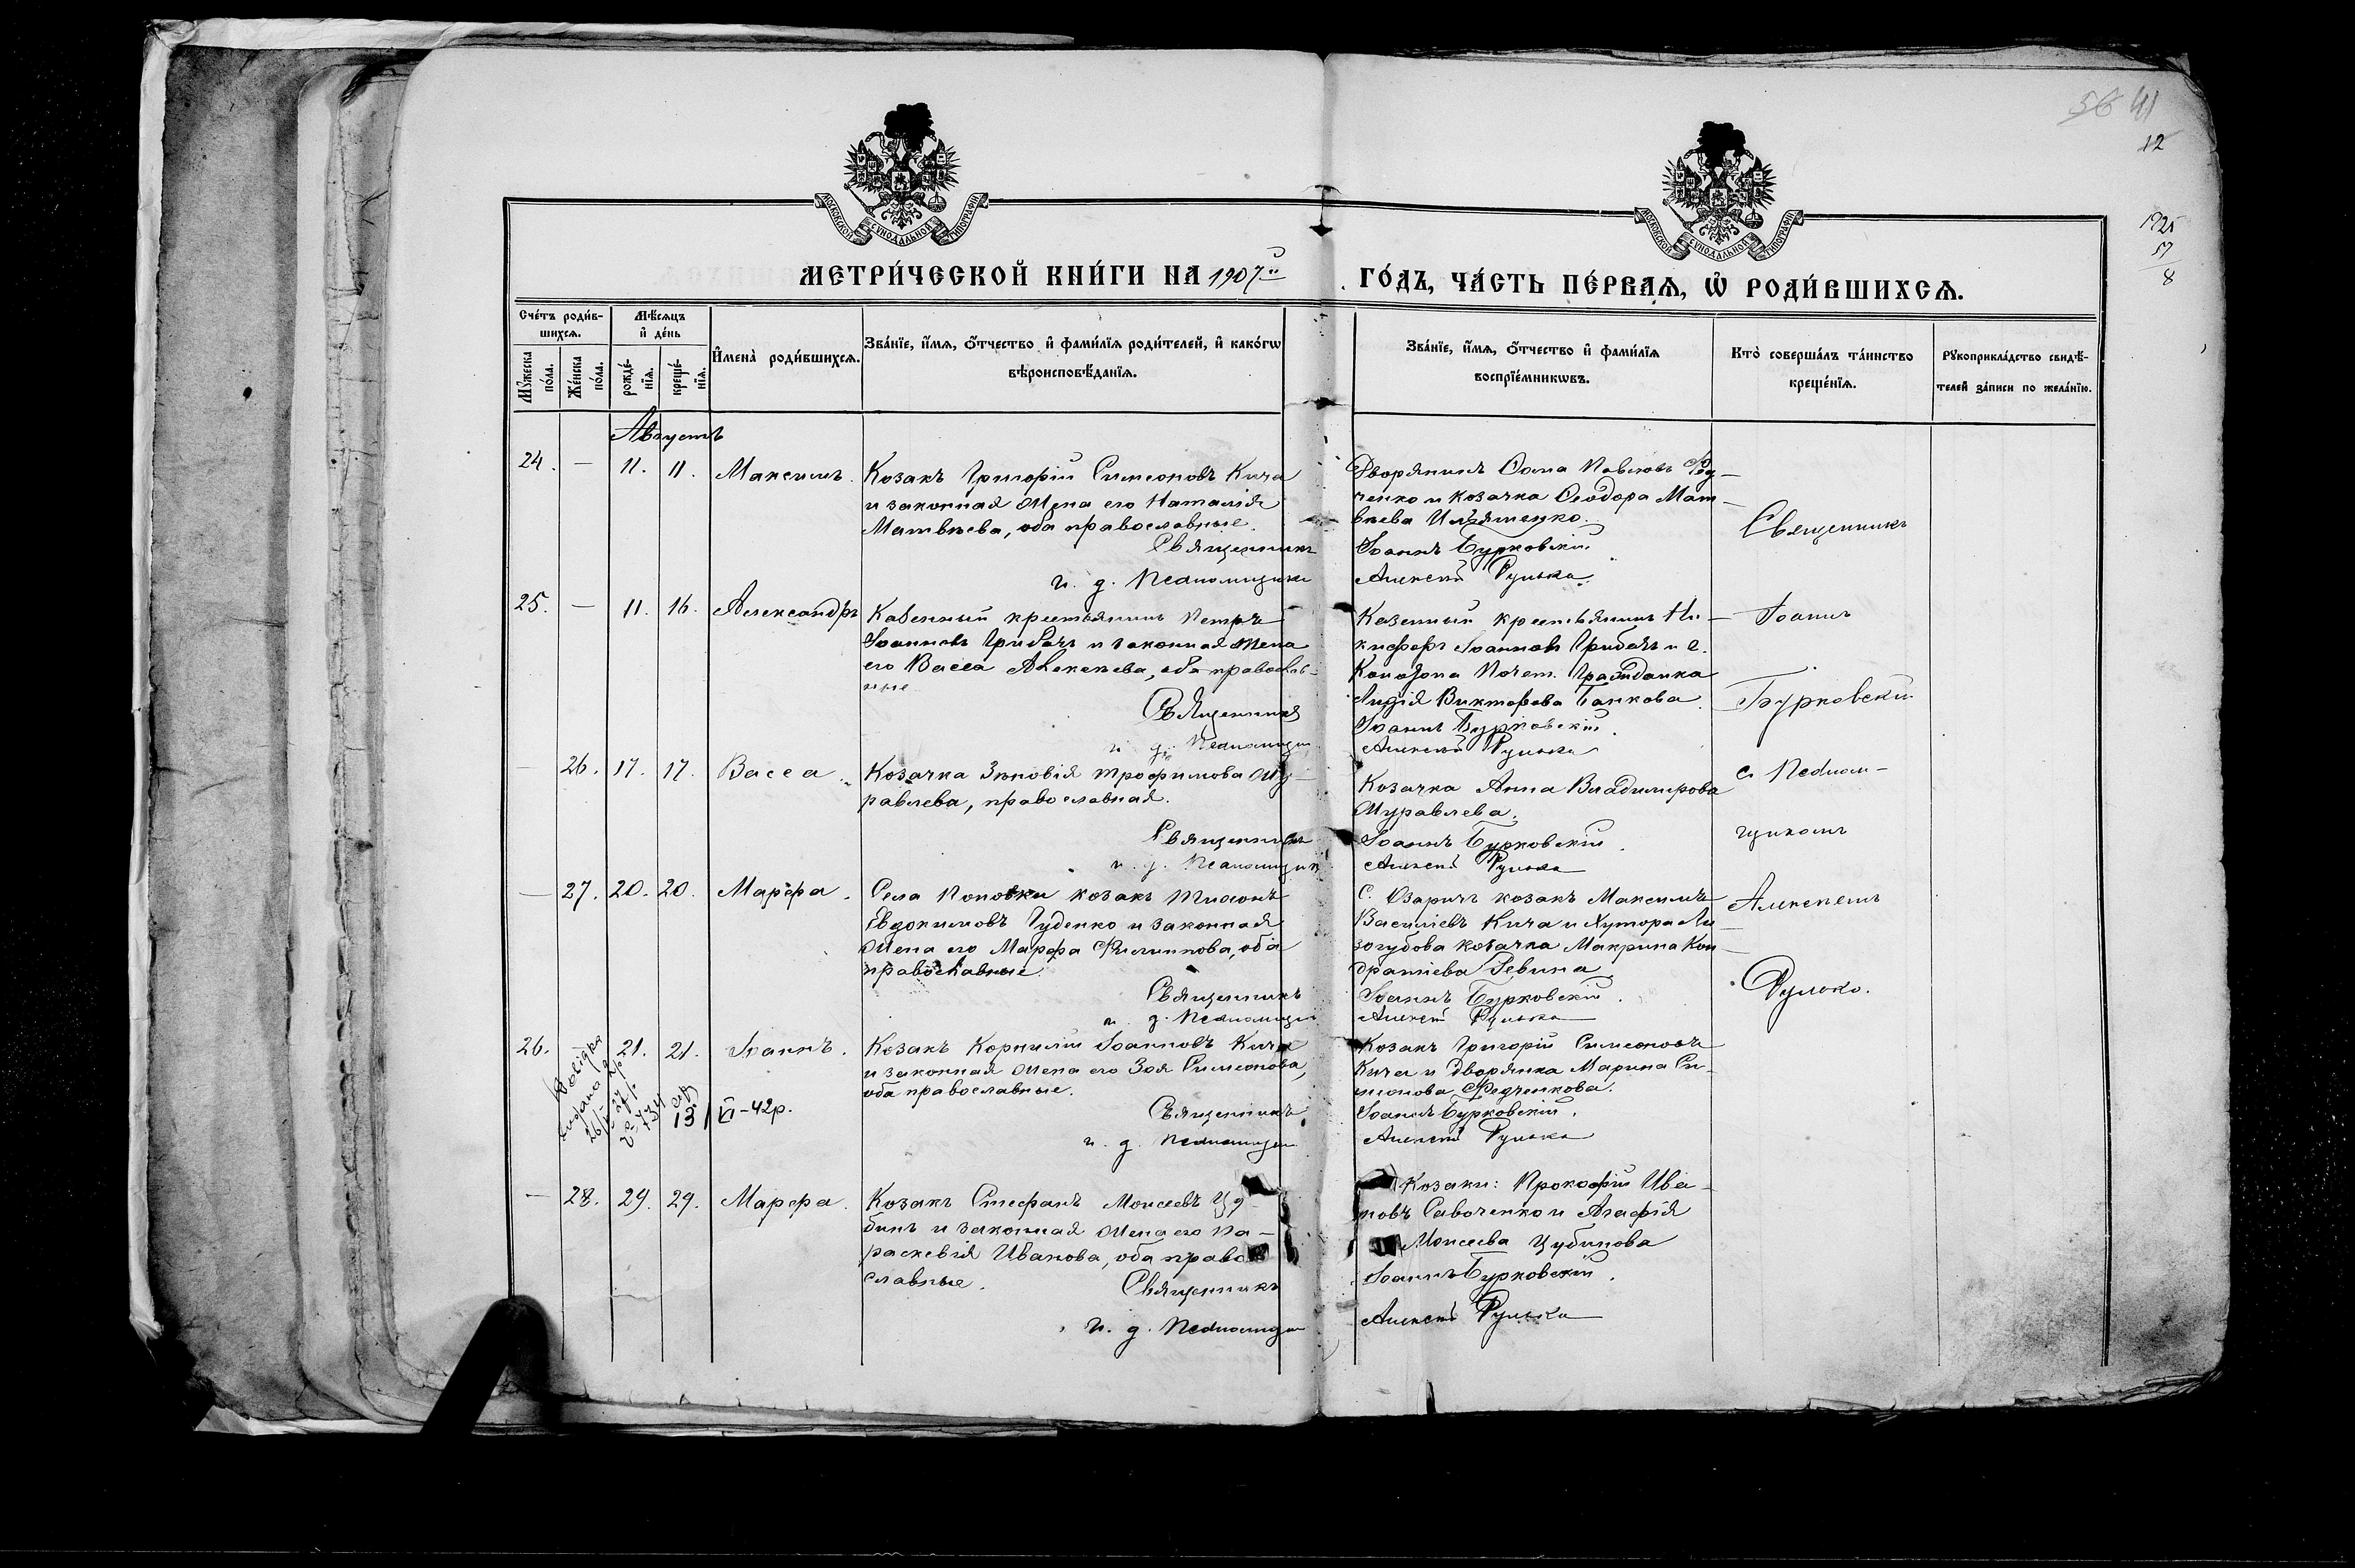 56 41
12
1725
57
8
МОСКОВСКОЙ СѴНОДАЛЬНОЙ ТИПОГРАФІИ
МОСКОВСКОЙ СѴНОДАЛЬНОЙ ТИПОГРАФІИ
МЕТРИ́ЧЕСКОЙ КНИ́ГИ НА 1907й ГО́ДЪ, ЧА́СТЬ ПЕ́РВАѦ, Ѡ҆ РОДИ́ВШИХСѦ.
Сче́тъ роди́в-
шихсѧ.
Мꙋ́жеска по́ла.
Же́нска по́ла.
Мѣ́сѧцъ
и҆ де́нь
рожде́-
нїѧ.
креще́-
нїѧ.
И҆мена̀ роди́вшихсѧ.
Зва́нїе, и҆́мѧ, ѻ҆́тчество и҆ фами́лїѧ роди́телей, и҆ како́гѡ
вѣроисповѣ́данїѧ.
Зва́нїе, и҆́мѧ, ѻ҆́тчество и҆ фами́лїѧ
воспрїе́мникѡвъ.
Кто̀ соверша́лъ та́инство
креще́нїѧ.
Рꙋкоприкла́дство свидѣ́-
телей за́писи по жела́нїю.
Августъ
24. — 11. 11. Максимъ.
Козакъ Григорій Симеоновъ Кича
и законная жена его Наталія
Матвѣева, оба православные.
Священникъ
и. д. Псаломщика
Дворянинъ Ѳома Павловъ Фед-
ченко и козачка Ѳеодора Мат-
вѣева Ильяшенко.
Іоаннъ Бурковскій.
Алексѣй Рулько
25. — 11. 16. Александръ
Казенный крестьянинъ Петръ
Іоанновъ Грибачъ и законная жена
его Васса Алексѣева, оба православ-
ные
Священникъ
и. д. Псаломщи
Казенный крестьянинъ Ни-
кифоръ Іоанновъ Грибачъ и г.
Конотопа Почет. Гражданка
Лидія Викторова Банкова.
Іоаннъ Бурковскій.
Алексѣй Рулько
— 26. 17. 17. Васса.
Козачка Зѣновія Трофимова Жу-
равлева, православная.
Священникъ
и. д. Псаломщик
Козачка Анна Владимірова
Журавлева.
Іоаннъ Бурковскій.
Алексѣй Рулько
— 27. 20. 20. Марѳа.
Села Поповки козакъ Тихонъ
Евдокимовъ Гуденко и законная
жена его Марѳа Филиппова, оба
православные.
Священникъ
и. д. Псаломщи
С. Озаричъ козакъ Максимъ
Василіевъ Кича и Хутора Ли-
зогубова козачка Макрина Кон-
дратіева Ревина
Іоаннъ Бурковскій.
Алексѣй Рулько
26. — 21. 21. Іоаннъ.
Козакъ Корнилій Іоанновъ Кича
и законная жена его Зоя Симеонова,
оба православные.
Священникъ
и. д. Псаломщи
Козакъ Григорій Симеоновъ
Кича и дворянка Марина Си-
меонова Федченкова.
Іоаннъ Бурковскій.
Алексѣй Рулько
734
13/VI-42р.
— 28. 29. 29. Марѳа.
Козакъ Стефанъ Моисеевъ Цу-
бинъ и законная жена его Па-
раскевія Иванова, оба право
славные.
Священникъ
и. д. Псаломщи
Козаки: Прокофій Ива-
новъ Савоченко и Агафія
Моисеева Цубинова
Іоаннъ Бурковскій.
Алексѣй Рулько
Священникъ
Іоаннъ
Бурковскій
съ Псалом-
щикомъ
Алексѣемъ
Рулько.